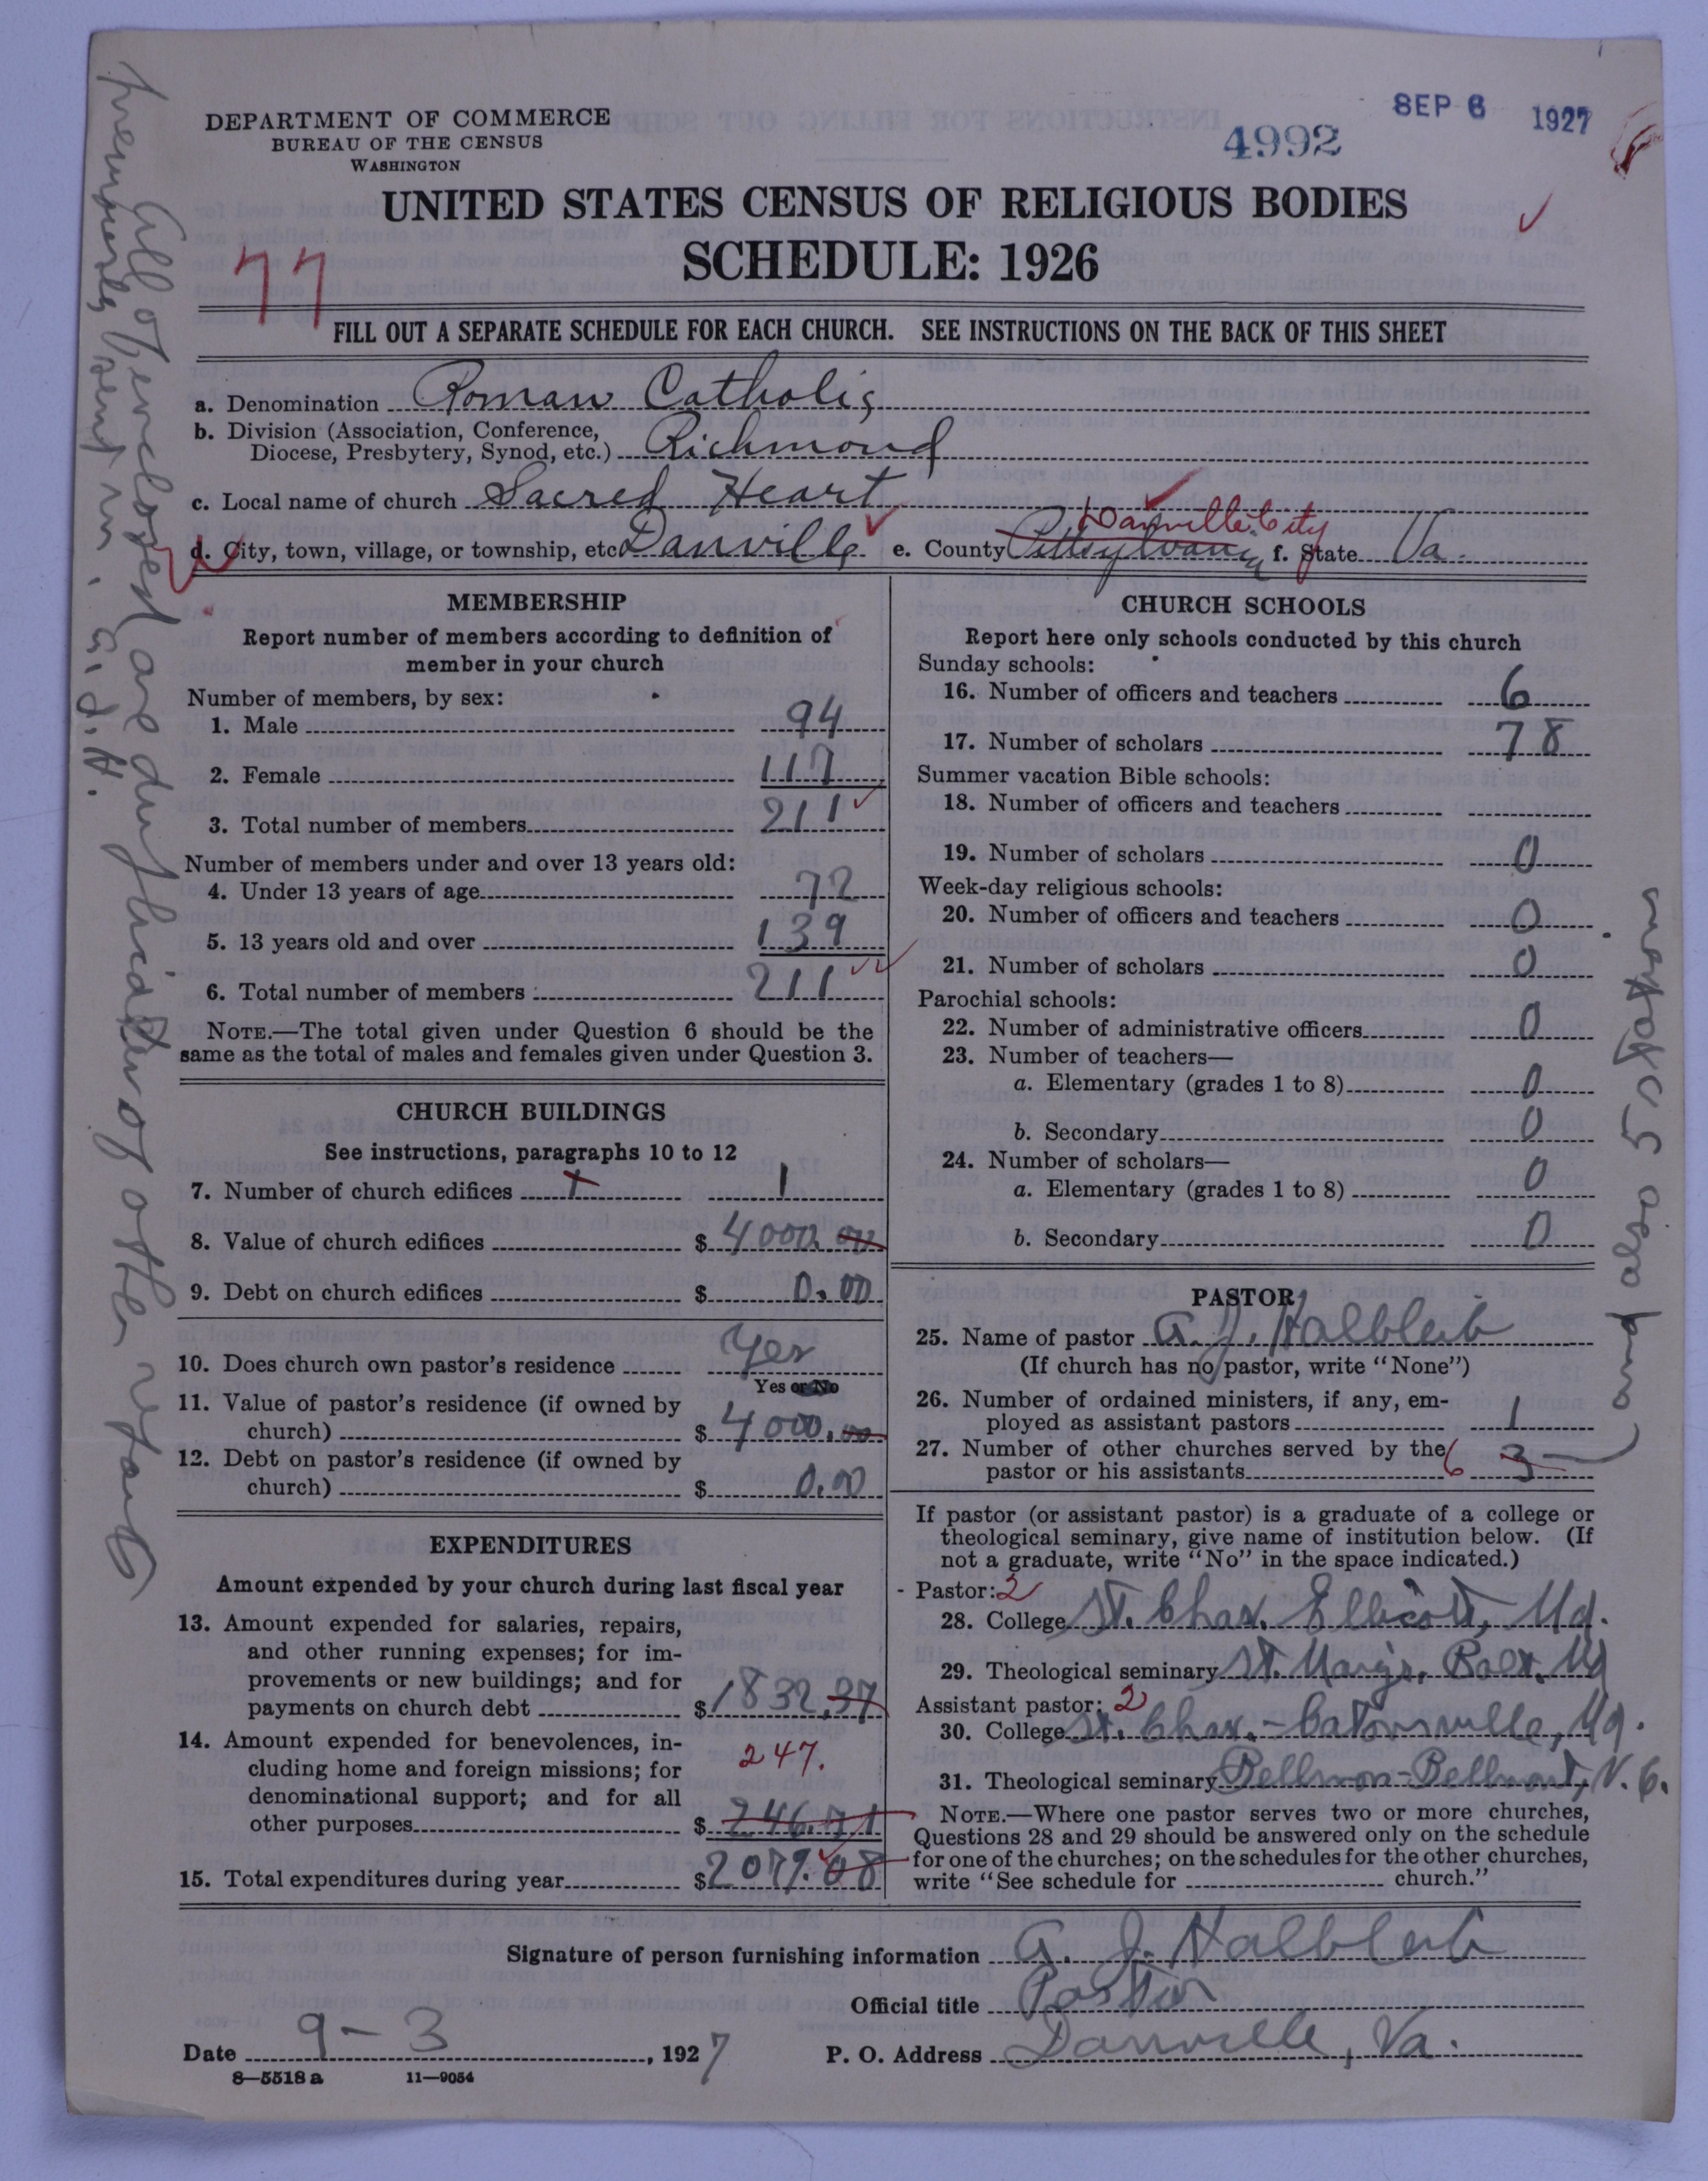 SEP 6 1927
4992
DEPARTMENT OF COMMERCE
BUREAU OF THE CENSUS
WASHINGTON
UNITED STATES CENSUS OF RELIGIOUS BODIES
SCHEDULE: 1926
77
FILL OUT A SEPARATE SCHEDULE FOR EACH CHURCH. SEE INSTRUCTIONS ON THE BACK OF THIS SHEET
a. Denomination Roman Catholic
b. Division (Association, Conference,
Diocese, Presbytery, Synod, etc.) Richmond
c. Local name of church Sacred Heart
Danville City
d. City, town, village, or township, etc. Danville e. County Pittsylvania f. State Va.
MEMBERSHIP
Report number of members according to definition of
member in your church
Number of members, by sex:
1. Male 94
2. Female 117
3. Total number of members 211
Number of members under and over 13 years old:
4. Under 13 years of age 72
5. 13 years old and over 139
6. Total number of members 211
NOTE.—The total given under Question 6 should be the
same as the total of males and females given under Question 3.
CHURCH BUILDINGS
See instructions, paragraphs 10 to 12
7. Number of church edifices 1 1
8. Value of church edifices $ 4000.00
9. Debt on church edifices $ 0.00
10. Does church own pastor's residence Yes
Yes or No
11. Value of pastor's residence (if owned by
church) $ 4000.00
12. Debt on pastor's residence (if owned by
church) $ 0.00
EXPENDITURES
Amount expended by your church during last fiscal year
13. Amount expended for salaries, repairs,
and other running expenses; for im-
provements or new buildings; and for
payments on church debt $ 1832.37
14. Amount expended for benevolences, in-
cluding home and foreign missions; for 247.
denominational support; and for all
other purposes $ 246.71
15. Total expenditures during year $ 2079.08
CHURCH SCHOOLS
Report here only schools conducted by this church
Sunday schools:
16. Number of officers and teachers 6
17. Number of scholars 78
Summer vacation Bible schools:
18. Number of officers and teachers
19. Number of scholars 0
Week-day religious schools:
20. Number of officers and teachers 0
21. Number of scholars 0
Parochial schools:
22. Number of administrative officers 0
23. Number of teachers—
a. Elementary (grades 1 to 8) 0
b. Secondary 0
24. Number of scholars—
a. Elementary (grades 1 to 8) 0
b. Secondary 0
PASTOR
25. Name of pastor A. J. Halbleib
(If church has no pastor, write "None")
26. Number of ordained ministers, if any, em-
ployed as assistant pastors 1
27. Number of other churches served by the
pastor or his assistants 6 3
If pastor (or assistant pastor) is a graduate of a college or
theological seminary, give name of institution below. (If
not a graduate, write "No" in the space indicated.)
Pastor: 2
28. College St. Chas. Ellicott, Md.
29. Theological seminary St. Mary's. Balt. Md
Assistant pastor: 2
30. College St. Chas. - Catonsville, Md.
31. Theological seminary Bellmon - Bellmont, N. C.
NOTE.—Where one pastor serves two or more churches,
Questions 28 and 29 should be answered only on the schedule
for one of the churches; on the schedules for the other churches,
write "See schedule for church."
Signature of person furnishing information A. J. Halbleib
Official title Pastor
Date 9-3, 1927 P. O. Address Danville, Va.
8—5518 a 11—9054
All of enclosed are duplicates of other reports
previously sent in. A.J.H.
and also 5 stations